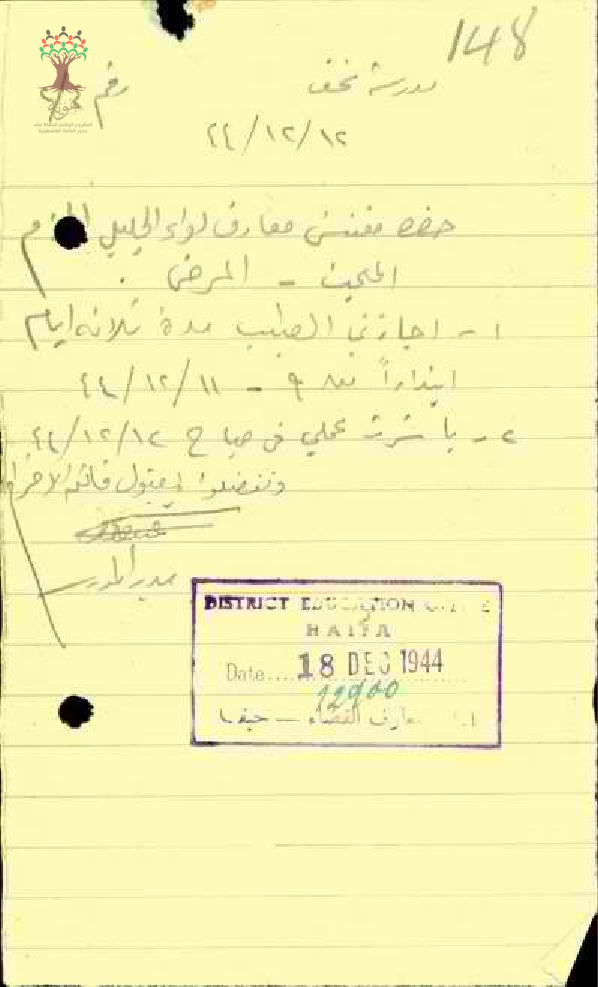 148
مدرسة نحف
رقم
٤٤/١٢/١٢
حضرة مفتش معارف لواء الجليل المحترم
المبحث - المرض
١ - اجازني الطبيب مدة ثلاثة ايام
ابتداءً من ٩ - ٤٤/١٢/١١
٢ - باشرت عملي في صباح ٤٤/١٢/١٢
وتفضلوا بقبول فائق الاحترام
مدير المدرسة
DISTRICT EDUCATION OFFICE
HAIFA
Date.... 18 DEC 1944
معارف القضاء — حيفا